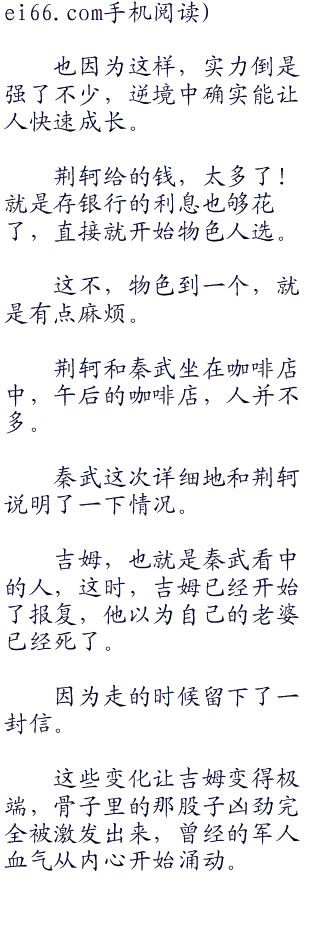 ei66.com手机阅读)
也因为这样，实力倒是
强了不少，逆境中确实能让
人快速成长。
荆轲给的钱，太多了！
就是存银行的利息也够花
了，直接就开始物色人选。
这不，物色到一个，就
是有点麻烦。
荆轲和秦武坐在咖啡店
中，午后的咖啡店，人并不
多。
秦武这次详细地和荆轲
说明了一下情况。
吉姆，也就是秦武看中
的人，这时，吉姆已经开始
了报复，他以为自己的老婆
已经死了。
因为走的时候留下了一
封信。
这些变化让吉姆变得极
端，骨子里的那股子凶劲完
全被激发出来，曾经的军人
血气从内心开始涌动。